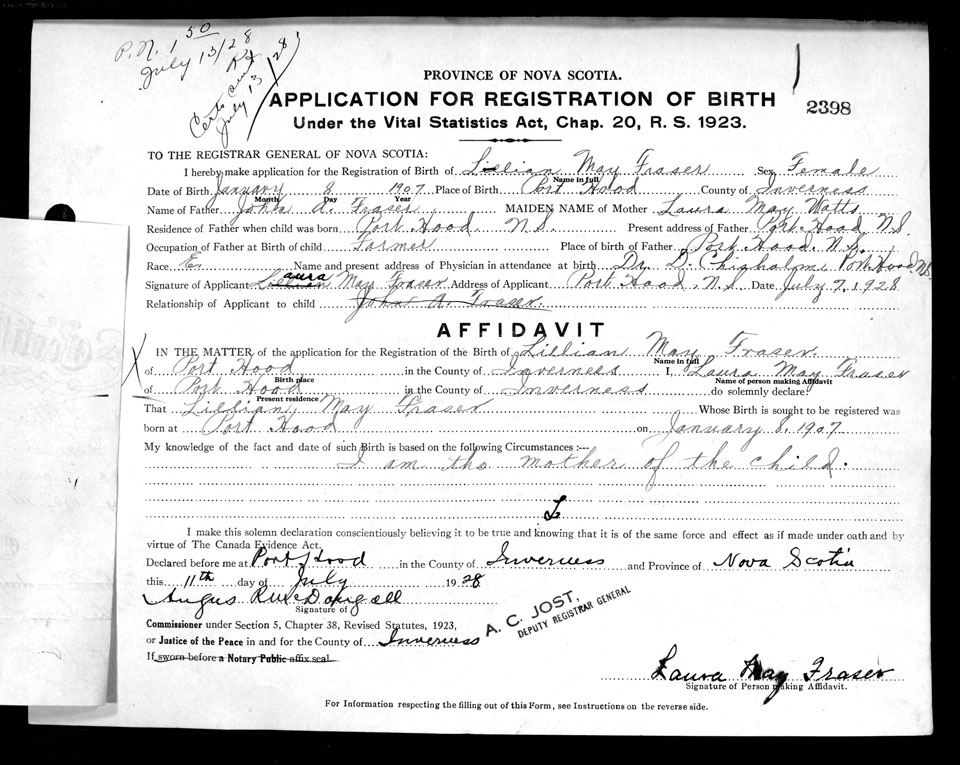 P.N. 1 50
July 13/28
Certs
July 13 /28
PROVINCE OF NOVA SCOTIA.
APPLICATION FOR REGISTRATION OF BIRTH
2398
Under the Vital Statistics Act, Chap. 20, R. S. 1923.
TO THE REGISTRAR GENERAL OF NOVA SCOTIA:
I hereby make application for the Registration of Birth of Lillian May Fraser Sex Female
Name in full
Date of Birth January 8 1907 Place of Birth Port Hood County of Inverness
Month Day Year
Name of Father John A. Fraser MAIDEN NAME of Mother Laura May Watts
Residence of Father when child was born Port Hood N.S. Present address of Father Port Hood, N.S.
Occupation of Father at Birth of child Farmer Place of birth of Father Port Hood, N.S.
Race E. Name and present address of Physician in attendance at birth Dr. D. Chisholm, Port Hood, N.S.
Signature of Applicant Lillian aura May Fraser Address of Applicant Port Hood, N.S. Date July 7, 1928
Relationship of Applicant to child John A. Fraser.
AFFIDAVIT
IN THE MATTER of the application for the Registration of the Birth of Lillian May Fraser.
Name in full
of Port Hood in the County of Inverness I, Laura May Fraser
Birth place Name of person making Affidavit
of Port Hood in the County of Inverness do solemnly declare:
Present residence
That Lillian May Fraser Whose Birth is sought to be registered was
born at Port Hood on January 8, 1907
My knowledge of the fact and date of such Birth is based on the following Circumstances :--
I am the mother of the child.
I make this solemn declaration conscientiously believing it to be true and knowing that it is of the same force and effect as if made under oath and by
virtue of The Canada Evidence Act.
Declared before me at Port Hood in the County of Inverness and Province of Nova Scotia
this 11th day of July 1928
Angus R MacDougall
Signature of
A. C. JOST,
DEPUTY REGISTRAR GENERAL
Commissioner under Section 5, Chapter 38, Revised Statutes, 1923,
or Justice of the Peace in and for the County of Inverness
If sworn before a Notary Public affix seal.
Laura May Fraser
Signature of Person making Affidavit.
For Information respecting the filling out of this Form, see Instructions on the reverse side.